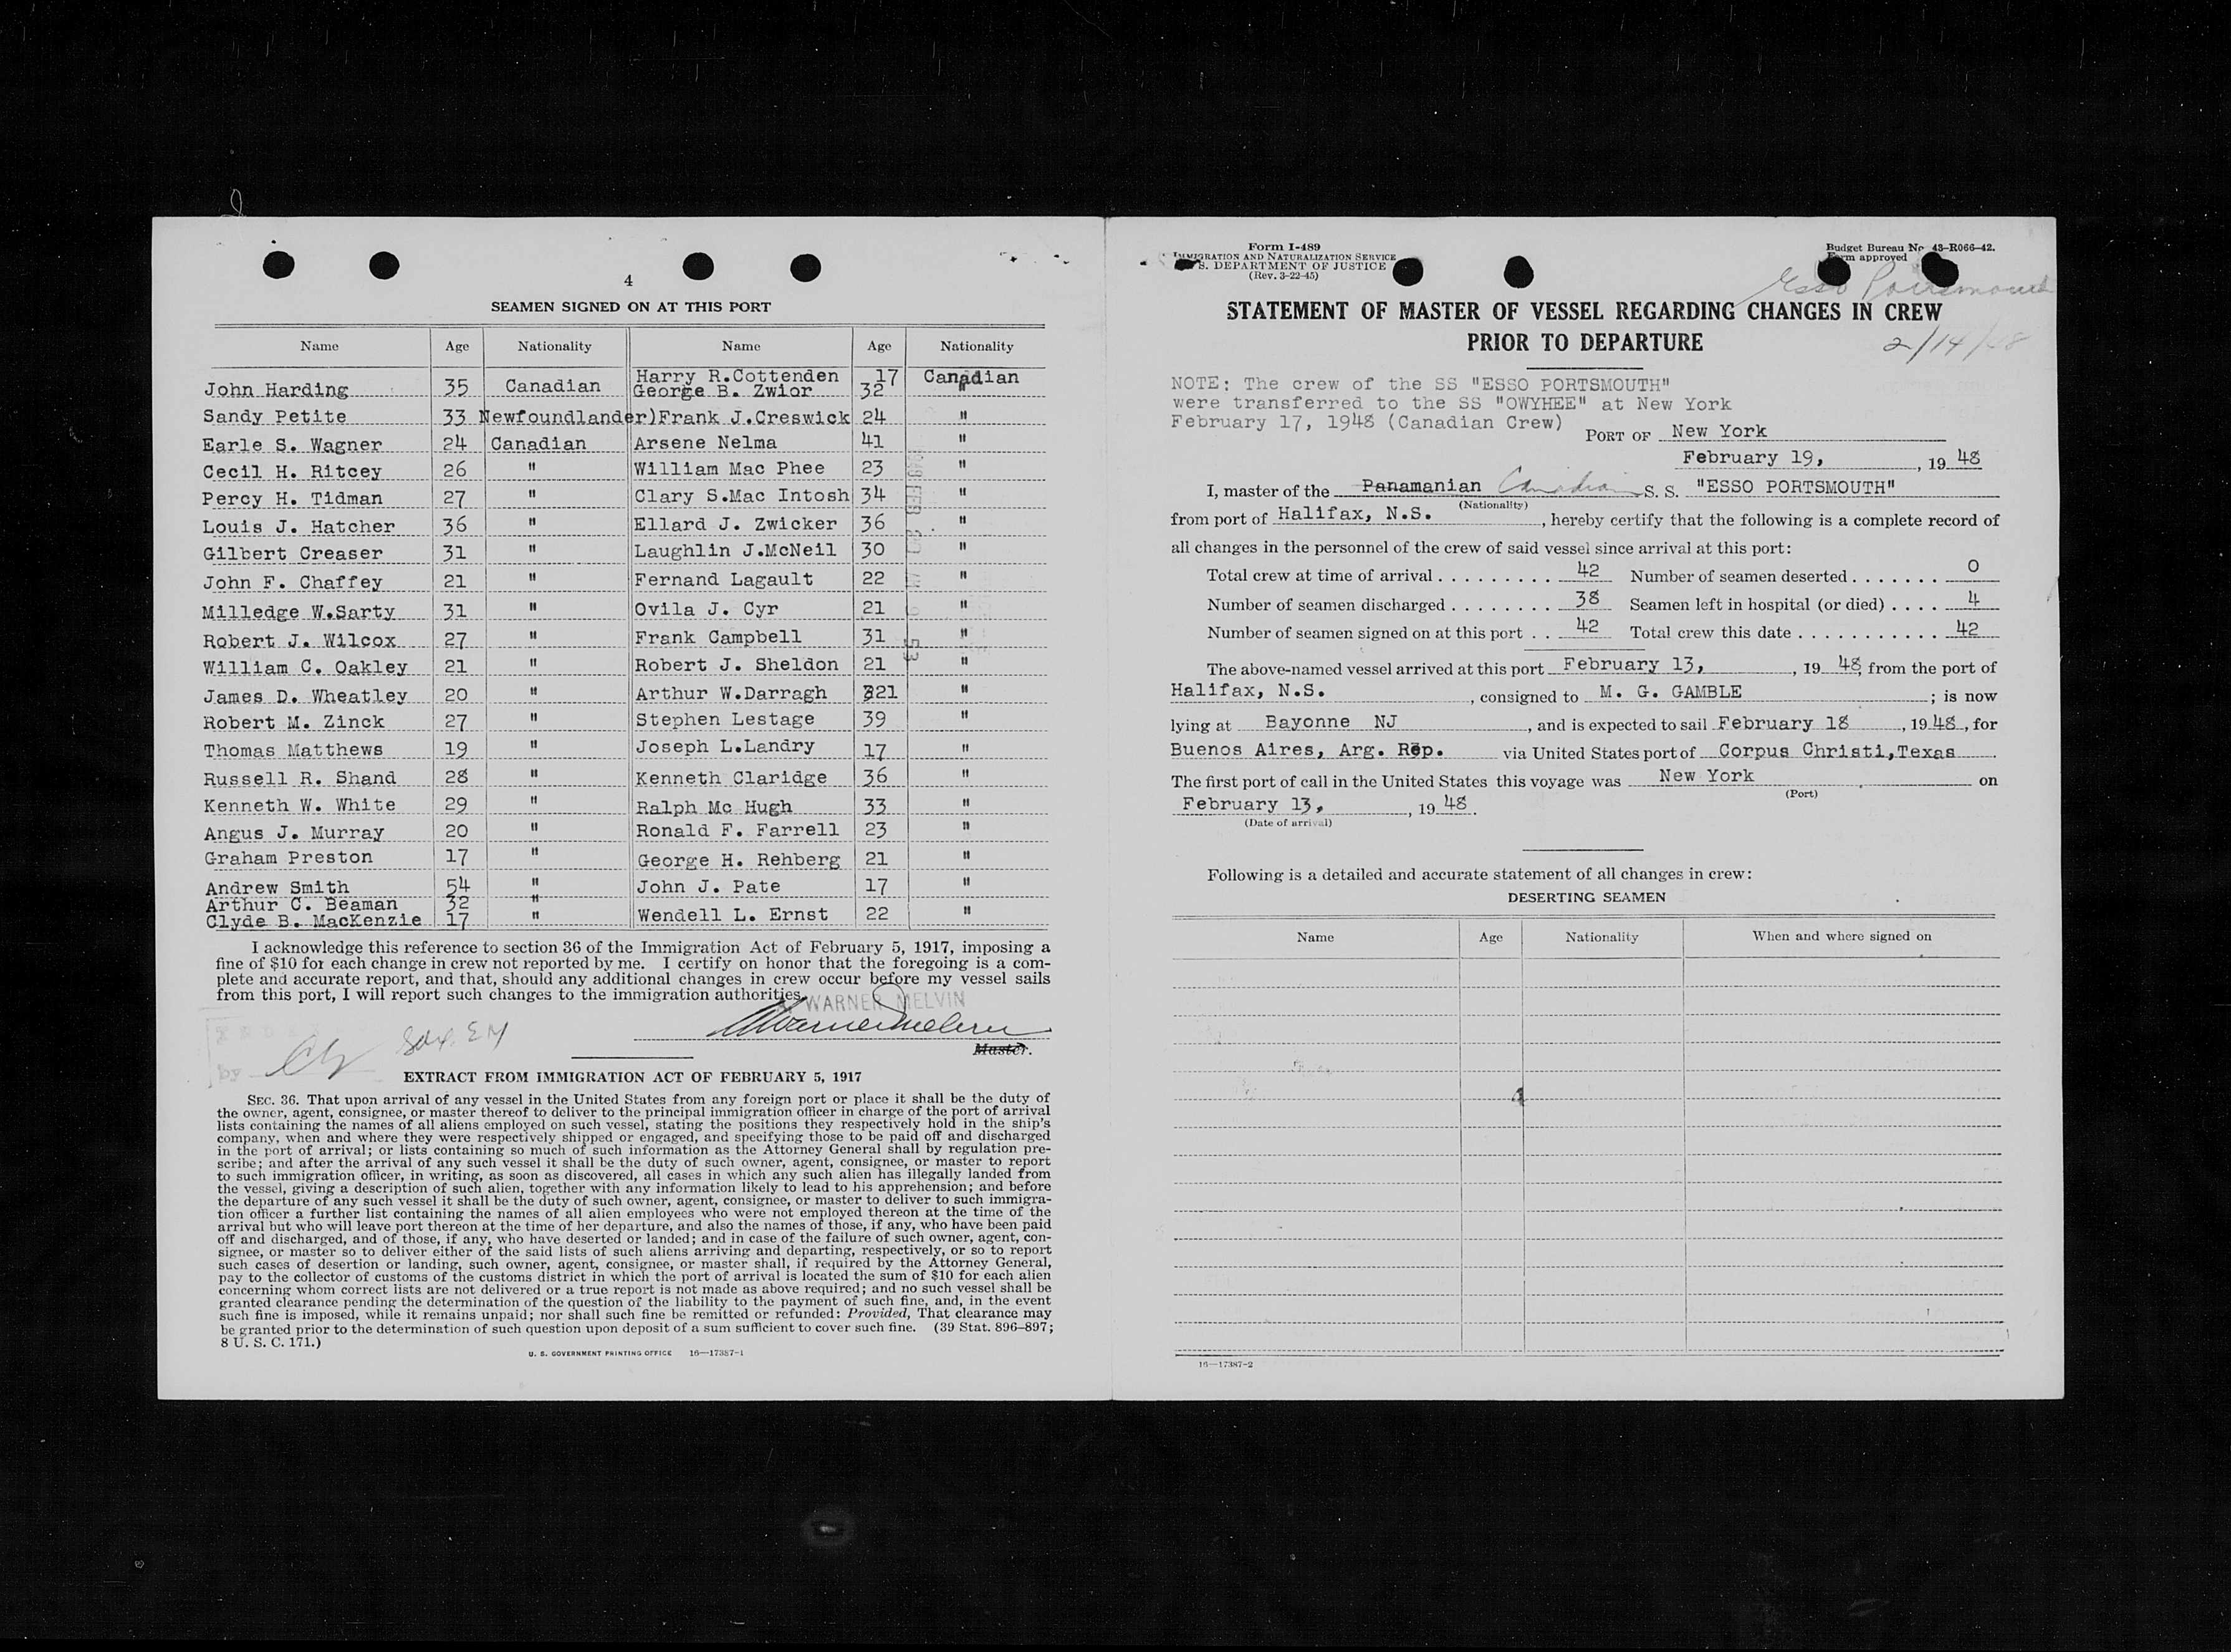 4
SEAMEN SIGNED ON AT THIS PORT
Name Age Nationality Name Age Nationality
John Harding 35 Canadian Harry R.Cottenden 17 Canadian
George B. Zwior 32 "
Sandy Petite 33 Newfoundlander)Frank J.Creswick 24 "
Earle S. Wagner 24 Canadian Arsene Nelma 41 "
Cecil H. Ritcey 26 " William Mac Phee 23 "
Percy H. Tidman 27 " Clary S.Mac Intosh 34 "
Louis J. Hatcher 36 " Ellard J. Zwicker 36 "
Gilbert Creaser 31 " Laughlin J.McNeil 30 "
John F. Chaffey 21 " Fernand Lagault 22 "
Milledge W.Sarty 31 " Ovila J. Cyr 21 "
Robert J. Wilcox 27 " Frank Campbell 31 "
William C. Oakley 21 " Robert J. Sheldon 21 "
James D. Wheatley 20 " Arthur W.Darragh 21 "
Robert M. Zinck 27 " Stephen Lestage 39 "
Thomas Matthews 19 " Joseph L.Landry 17 "
Russell R. Shand 28 " Kenneth Claridge 36 "
Kenneth W. White 29 " Ralph Mc Hugh 33 "
Angus J. Murray 20 " Ronald F. Farrell 23 "
Graham Preston 17 " George H. Rehberg 21 "
Andrew Smith 54 " John J. Pate 17 "
Arthur C. Beaman 32 "
Clyde B. MacKenzie 17 " Wendell L. Ernst 22 "
I acknowledge this reference to section 36 of the Immigration Act of February 5, 1917, imposing a
fine of $10 for each change in crew not reported by me. I certify on honor that the foregoing is a com-
plete and accurate report, and that, should any additional changes in crew occur before my vessel sails
from this port, I will report such changes to the immigration authorities.
WARNER MELVIN
Master.
EXTRACT FROM IMMIGRATION ACT OF FEBRUARY 5, 1917
SEC. 36. That upon arrival of any vessel in the United States from any foreign port or place it shall be the duty of
the owner, agent, consignee, or master thereof to deliver to the principal immigration officer in charge of the port of arrival
lists containing the names of all aliens employed on such vessel, stating the positions they respectively hold in the ship's
company, when and where they were respectively shipped or engaged, and specifying those to be paid off and discharged
in the port of arrival; or lists containing so much of such information as the Attorney General shall by regulation pre-
scribe; and after the arrival of any such vessel it shall be the duty of such owner, agent, consignee, or master to report
to such immigration officer, in writing, as soon as discovered, all cases in which any such alien has illegally landed from
the vessel, giving a description of such alien, together with any information likely to lead to his apprehension; and before
the departure of any such vessel it shall be the duty of such owner, agent, consignee, or master to deliver to such immigra-
tion officer a further list containing the names of all alien employees who were not employed thereon at the time of the
arrival but who will leave port thereon at the time of her departure, and also the names of those, if any, who have been paid
off and discharged, and of those, if any, who have deserted or landed; and in case of the failure of such owner, agent, con-
signee, or master so to deliver either of the said lists of such aliens arriving and departing, respectively, or so to report
such cases of desertion or landing, such owner, agent, consignee, or master shall, if required by the Attorney General,
pay to the collector of customs of the customs district in which the port of arrival is located the sum of $10 for each alien
concerning whom correct lists are not delivered or a true report is not made as above required; and no such vessel shall be
granted clearance pending the determination of the question of the liability to the payment of such fine, and, in the event
such fine is imposed, while it remains unpaid; nor shall such fine be remitted or refunded: Provided, That clearance may
be granted prior to the determination of such question upon deposit of a sum sufficient to cover such fine. (39 Stat. 896–897;
8 U. S. C. 171.)
U. S. GOVERNMENT PRINTING OFFICE 16—17387-1
Form I-489
IMMIGRATION AND NATURALIZATION SERVICE
U. S. DEPARTMENT OF JUSTICE
(Rev. 3-22-45)
Budget Bureau No. 43-R066-42.
Form approved
Esso Portsmouth
STATEMENT OF MASTER OF VESSEL REGARDING CHANGES IN CREW
PRIOR TO DEPARTURE
2/14/48
NOTE: The crew of the SS "ESSO PORTSMOUTH"
were transferred to the SS "OWYHEE" at New York
February 17, 1948 (Canadian Crew)
PORT OF New York
February 19, , 19 48
I, master of the Panamanian Canadian S. S. "ESSO PORTSMOUTH"
(Nationality)
from port of Halifax, N.S. , hereby certify that the following is a complete record of
all changes in the personnel of the crew of said vessel since arrival at this port:
Total crew at time of arrival . . . . . . . . . 42 Number of seamen deserted . . . . . . . 0
Number of seamen discharged . . . . . . . . 38 Seamen left in hospital (or died) . . . . 4
Number of seamen signed on at this port . . 42 Total crew this date . . . . . . . . . . . 42
The above-named vessel arrived at this port February 13, , 19 48, from the port of
Halifax, N.S. , consigned to M. G. GAMBLE ; is now
lying at Bayonne NJ , and is expected to sail February 18 , 19 48, for
Buenos Aires, Arg. Rep. via United States port of Corpus Christi,Texas
The first port of call in the United States this voyage was New York on
(Port)
February 13, , 19 48.
(Date of arrival)
Following is a detailed and accurate statement of all changes in crew:
DESERTING SEAMEN
Name Age Nationality When and where signed on
16—17387-2